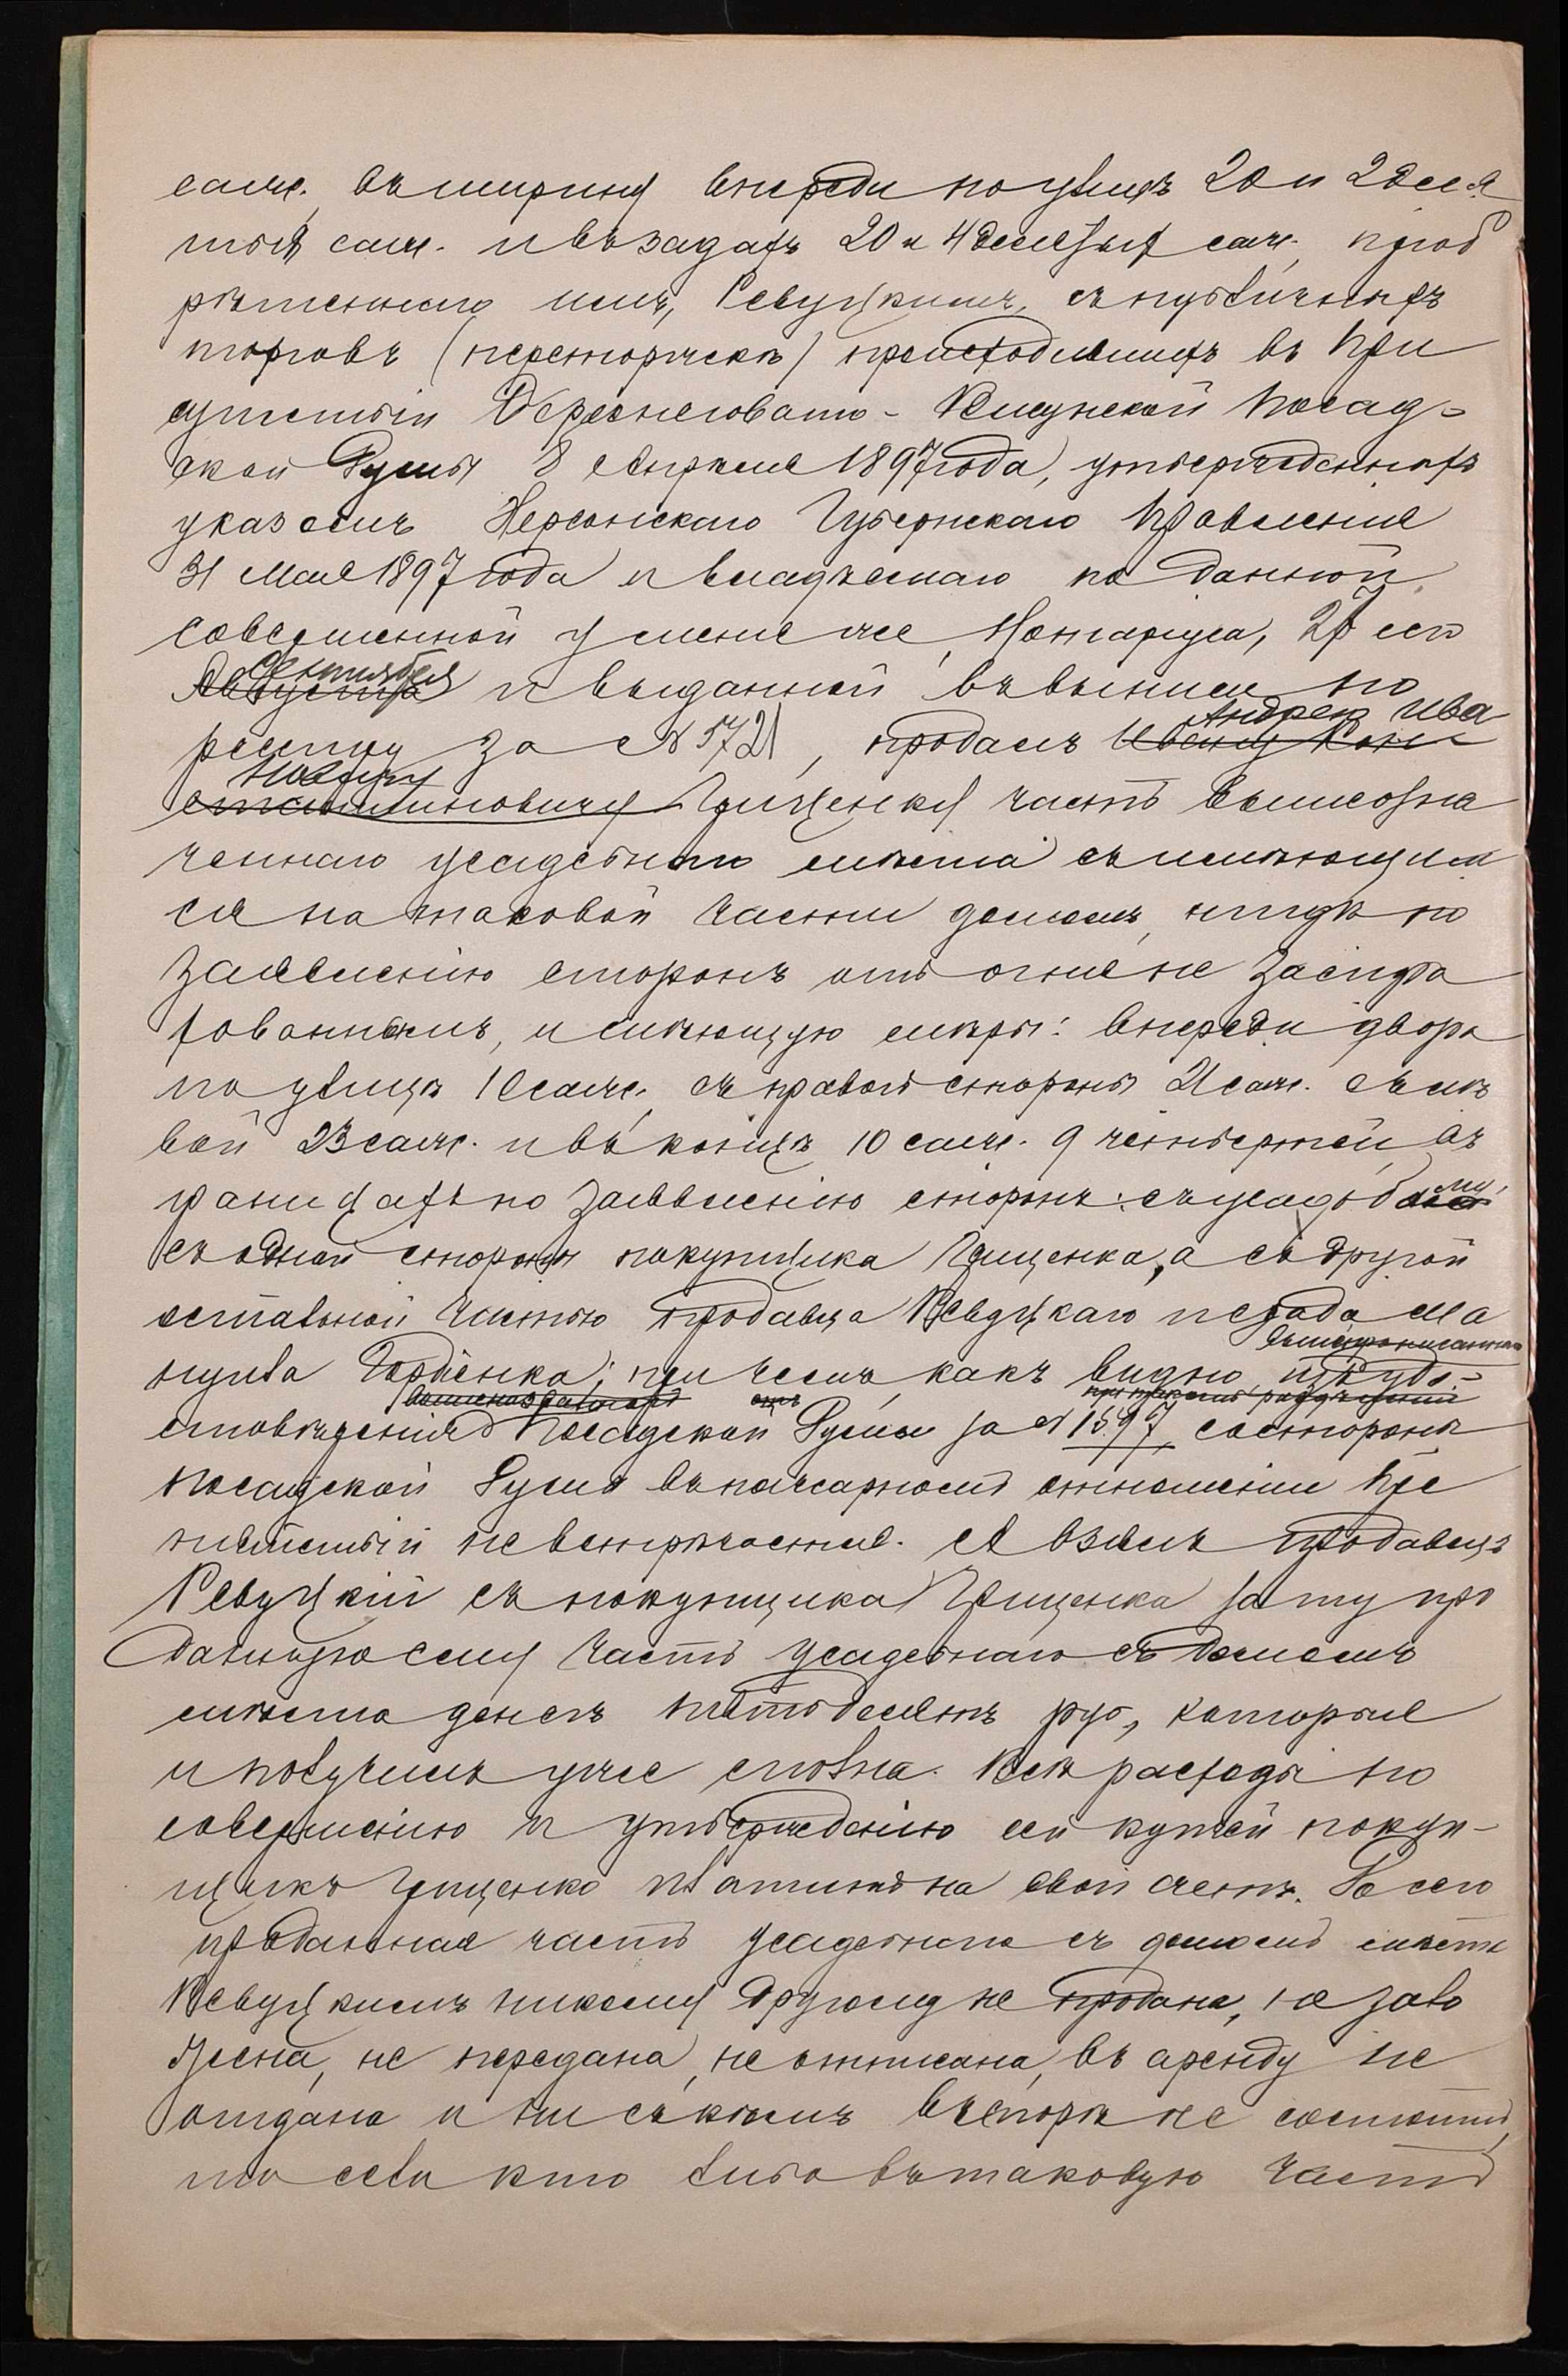 саж., въ ширину впереди по улицѣ 20 и 2 деся
тыя саж. и въ задахъ 20 и 4 десятыя саж., пріоб
рѣтеннаго имъ, Ревуцкимъ, съ публичныхъ
торговъ (переторжски) происходившихъ въ При
сутствіи Березнеговато-Висунской Посад-
ской Думы 8 Апрѣля 1897 года, утвержденныхъ
указомъ Херсонскаго Губернскаго Правленія
31 Мая 1897 года и владѣемаго по данной,
совершенной у меня же, Нотаріуса, сего
Сентября
Августа и выданной въ выписи по
Андрею Ива
реестру за № 5721, продалъ Ивану Кон
новичу
стантиновичу Грищенку часть вышеозна
ченнаго усадебнаго мѣста съ имѣющим
ся на таковой части домомъ, нигдѣ по
заявленію сторонъ отъ огня не застра
хованнымъ, и имѣющую мѣры: впереди двора
по улицѣ 10 саж., съ правой стороны 21 саж. съ лѣ
вой 23 саж. и въ концѣ 10 саж. 9 четвертей, въ
границахъ по заявленію сторонъ: съ усадьбами,
съ одной стороны покупщика Грищенка, а съ другой
остальной частью продавца Ревуцкаго и сзада Ма
нуила Гордіенка; при чемъ, какъ видно изъ удо-
стовѣренія Посадской Думы за № 1597, со стороны
Посадской Думы въ пожарномъ отношеніи пре
пятствій не встрѣчается. А взялъ продавецъ
Ревуцкій съ покупщика Грищенка за ту про
данную ему часть усадебнаго съ домомъ
мѣста денегъ пятьдесятъ руб., которые
и получилъ уже сполна. Всѣ расходы по
совершенію и утвержденію сей купчей покуп-
щикъ Грищенко платитъ на свой счетъ. До сего
проданная часть усадебнаго съ домомъ мѣста
Ревуцкимъ никому другому не продана, не зало
жена, не передана, не отписана, въ аренду не
отдана и ни съ кѣмъ въ спорѣ не состоитъ,
но если кто либо въ таковую часть